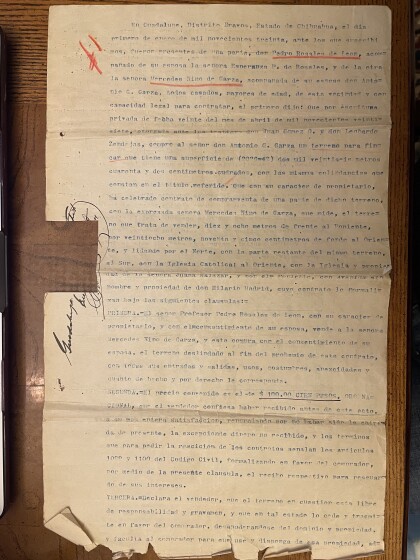 En Guadalupe, Distrito Bravos, Estado de Chihuahua, el día
primero de enero de mil novecientos treinta, ante los que suscribi
mos, fueron presentes de una parte, don Pedro Rosales de Leon, acom
pañado de su esposa la señora Esperanza de Rosales, y de la otra
la señora Mercedes Rico de Garza, acompañada de su esposo don
C. Garza, ambos casados, mayores de edad, de esta vecindad y con
capacidad legal para contratar, el primero dijo: que por escritura
privada de fecha veinte del mes de abril de mil novecientos
Juan Gomez y don Leonardo
Zendejas, compró al señor don Antonio C. Garza un terreno para fin
car que tiene una superficie de dos mil metros
cuarenta y dos centímetros cuadrados, con las mismas colindancias que
constan en el título referido. Que con su caracter de propietario,
ha celebrado contrato de compraventa de una parte de dicho terreno,
con la expresada señora Mercedes Rico de Garza, que mide, el terre
no que trata de vender, diez y ocho metros de frente al Poniente,
por veintiocho metros, noventa y cinco centímetros de fondo al Orien
te, y linda por el Norte, con la parte restante del mismo terreno,
al Sur, con la Iglesia Catolica; al Oriente, con la Iglesia y
de la señora Juana y con
hombre y propiedad de don Hilario Madrid, cuyo contrato lo formali
zan bajo las siguientes clausulas:
PRIMERA.-El señor Profesor Pedro Rosales de Leon, con su caracter de
propietario, y con consentimiento de su esposa, vende a la señora
Mercedes Rico de Garza, y esta compra con el consentimiento de su
esposo, el terreno deslindado al fin del preambulo de este contrato,
con todas sus entradas y salidas, usos, costumbres, anexidades y
cuanto de hecho y por derecho le corresponde.
SEGUNDA.-El precio convenido es el de $ 100.00 CIEN PESOS,
que el vendedor confiesa haber recibido antes de este acto,
a su entera satisfacción, renunciando por no haber sido la entre
ga de presente, la excepcion de dinero no recibido, y los terminos
que para pedir la rescicion de los contratos señalan los articulos
1099 y 1100 del Codigo Civil, formalizando en favor del comprador,
por medio de la presente clausula, el recibo respectivo para resguar
do de sus intereses.
TERCERA.-Declara el vendedor, que el terreno en cuestion esta libre
de responsabilidad y gravamen, y que en tal estado lo cede y trasmi
te en favor del comprador, desapoderandose del dominio y propiedad,
y faculta al comprador para que use y disponga de esa propiedad,